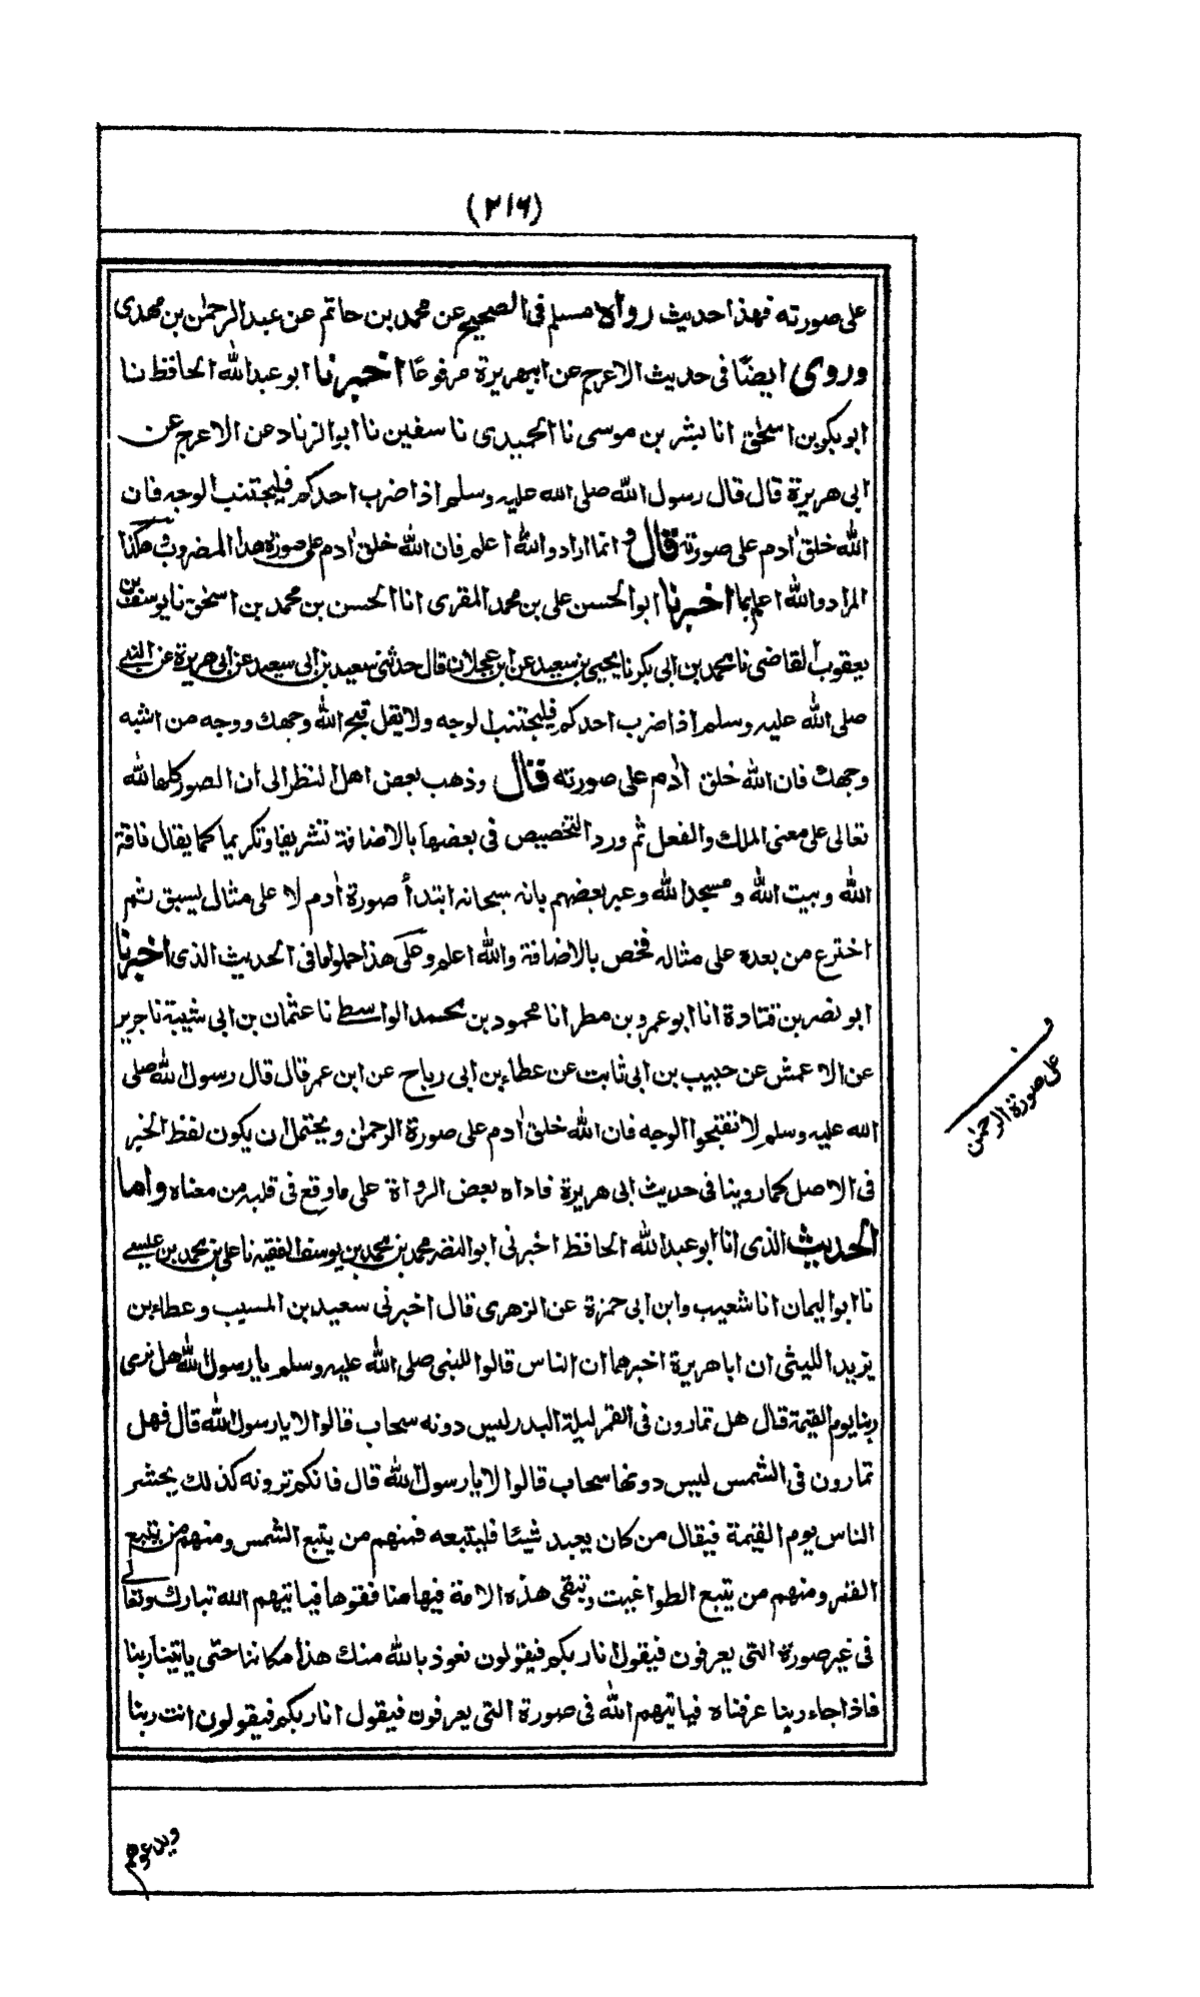 (٢١٦)
على صورته فهذا حديث رواه مسلم فى الصحيح عن محمد بن حاتم عن عبد الرحمٰن بن مهدى
وروى ايضًا فى حديث الاعرج عن ابيهريرة مرفوعًا اخبرنا ابو عبد الله الحافظ نا
ابو بكر بن اسحٰق انا بشر بن موسى نا الحميدى نا سفين نا ابو الزناد عن الاعرج عن
ابى هريرة قال قال رسول الله صلى الله عليه وسلم اذا ضرب احدكم فليجتنب الوجه فان
الله خلق اٰدم على صورته قال و انما اراد والله اعلم فان الله خلق اٰدم على صورة هذا المضروب هكذا
المراد والله اعلم بما اخبرنا ابو الحسن على بن محمد المقرى انا الحسن بن محمد بن اسحٰق نا يوسف بن
يعقوب القاضى نا محمد بن ابى بكر نا يحيى بن سعيد عن ابن عجلان قال حدثنى سعيد بن ابى سعيد عن ابى هريرة عن النبى
صلى الله عليه وسلم اذا ضرب احدكم فليجتنب الوجه ولا يقل قبح الله وجهك ووجه من اشبه
وجهك فان الله خلق اٰدم على صورته قال وذهب بعض اهل النظر الى ان الصور كلها لله
تعالى على معنى الملك والفعل ثم ورد التخصيص فى بعضها بالاضافة تشريفا وتكريما كما يقال ناقة
الله وبيت الله ومسجد الله وعبر بعضهم بانه سبحانه ابتدأ صورة اٰدم لا على مثال يسبق ثم
اخترع من بعده على مثاله فخص بالاضافة والله اعلم وعلى هذا حملوا ما فى الحديث الذى اخبرنا
ابو نصر بن قتادة انا ابو عمرو بن مطر انا محمود بن محمد الواسطى نا عثمان بن ابى شيبة نا جرير
عن الاعمش عن حبيب بن ابى ثابت عن عطاء بن ابى رباح عن ابن عمر قال قال رسول الله صلى
الله عليه وسلم لا تقبحوا الوجه فان الله خلق اٰدم على صورة الرحمٰن ويحتمل ان يكون لفظ الخبر
فى الاصل كما روينا فى حديث ابى هريرة فاداه بعض الرواة على ما وقع فى قلبه من معناه واما
الحديث الذى انا ابو عبد الله الحافظ اخبرنى ابو النضر محمد بن محمد بن يوسف الفقيه نا على بن محمد بن عيسى
نا ابو اليمان انا شعيب وابن ابى حمزة عن الزهرى قال اخبرنى سعيد بن المسيب وعطاء بن
يزيد الليثى ان ابا هريرة اخبرهما ان الناس قالوا للنبى صلى الله عليه وسلم يا رسول الله هل نرى
ربنا يوم القيٰمة قال هل تمارون فى القمر ليلة البدر ليس دونه سحاب قالوا لا يا رسول الله قال فهل
تمارون فى الشمس ليس دونها سحاب قالوا لا يا رسول الله قال فانكم ترونه كذلك يحشر
الناس يوم القيٰمة فيقال من كان يعبد شيئا فليتبعه فمنهم من يتبع الشمس ومنهم من يتبع
القمر ومنهم من يتبع الطواغيت وتبقى هذه الامة فيها منافقوها فياتيهم الله تبارك وتعالى
فى غير صورة التى يعرفون فيقول انا ربكم فيقولون نعوذ بالله منك هذا مكاننا حتى ياتينا ربنا
فاذا جاء ربنا عرفناه فياتيهم الله فى صورة التى يعرفون فيقول انا ربكم فيقولون انت ربنا
على صورة الرحمٰن
ويدعوهم